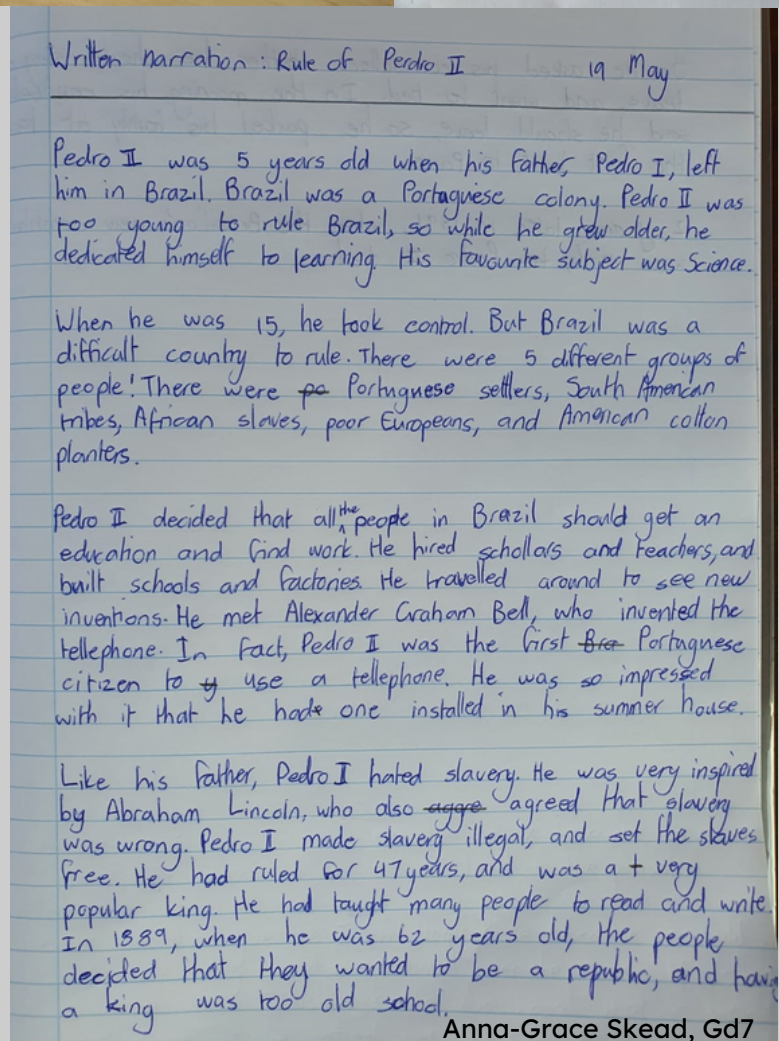 Written narration : Rule of Perdro II 19 May
Pedro II was 5 years old when his father, Pedro I, left
him in Brazil. Brazil was a Portaguese colony. Pedro II was
too young to rule Brazil, so while he grew older, he
dedicated himself to learning. His favourite subject was Science.
When he was 15, he took control. But Brazil was a
difficult country to rule. There were 5 different groups of
people! There were po Portuguese settlers, South American
tribes, African slaves, poor Europeans, and American cotton
planters.
Pedro II decided that all the people in Brazil should get an
education and find work. He hired schollars and teachers, and
built schools and factories. He travelled around to see new
inventions. He met Alexander Graham Bell, who invented the
tellephone. In fact, Pedro II was the first Bra Portuguese
citizen to y use a tellephone. He was so impressed
with it that he had one installed in his summer house.
Like his father, Pedro I hated slavery. He was very inspired
by Abraham Lincoln, who also aggre agreed that slavery
was wrong. Pedro I made slavery illegal, and set the slaves
free. He had ruled for 47 years, and was a t very
popular king. He had taught many people to read and write.
In 1889, when he was 62 years old, the people
decided that they wanted to be a republic, and having
a king was too old school.
Anna-Grace Skead, Gd7